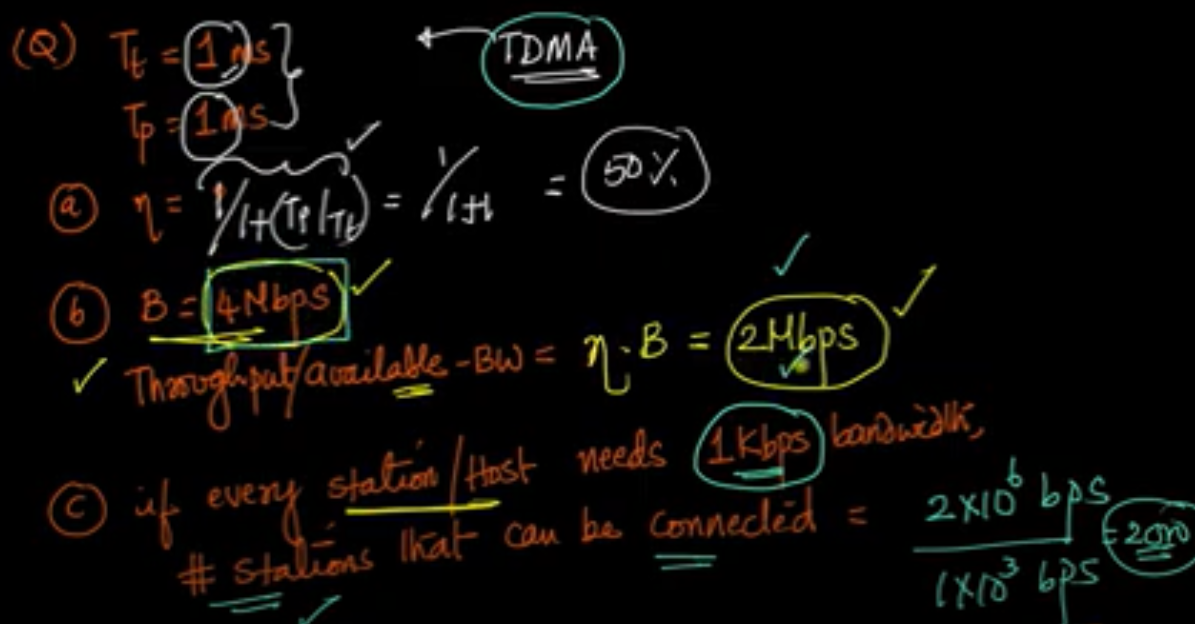 (Q) Tt = 1 ms
TDMA
Tp = 1 ms
(a) η = 1/1+(Tp/Tt) = 1/1+1 = 50%
(b) B = 4Mbps
Throughput/available-BW = η·B = 2Mbps
(c) if every station/Host needs 1Kbps bandwidth,
# stations that can be connected = 2×10⁶ bps / 1×10³ bps = 2000